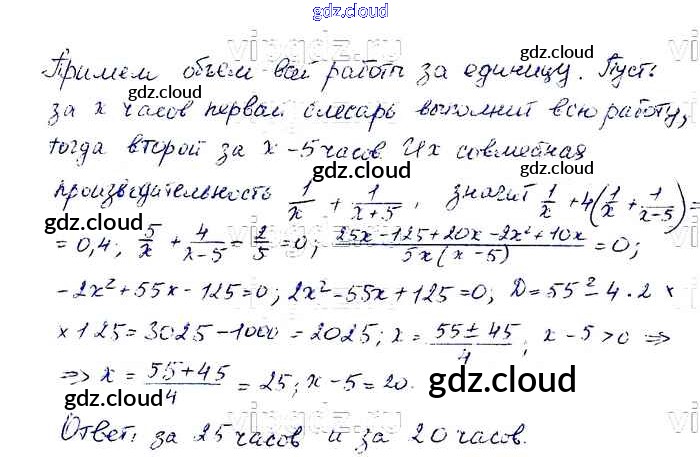 gdz.cloud
Примем объем всей работы за единицу. Пусть
за x часов первый слесарь выполнит всю работу,
тогда второй за x-5 часов. Их совместная
производительность 1/x + 1/(x+5), значит 1/x + 4(1/x + 1/(x-5)) =
= 0,4; 5/x + 4/(x-5) - 2/5 = 0; (25x-125+20x-2x²+10x)/(5x(x-5)) = 0;
-2x²+55x-125=0; 2x²-55x+125=0; D=55²-4·2×
×125=3025-1000=2025; x=(55±45)/4; x-5>0 ⇒
⇒ x=(55+45)/4=25; x-5=20.
Ответ: за 25 часов и за 20 часов.
gdz.cloud
gdz.cloud
gdz.cloud
gdz.cloud
gdz.cloud
gdz.cloud
gdz.cloud